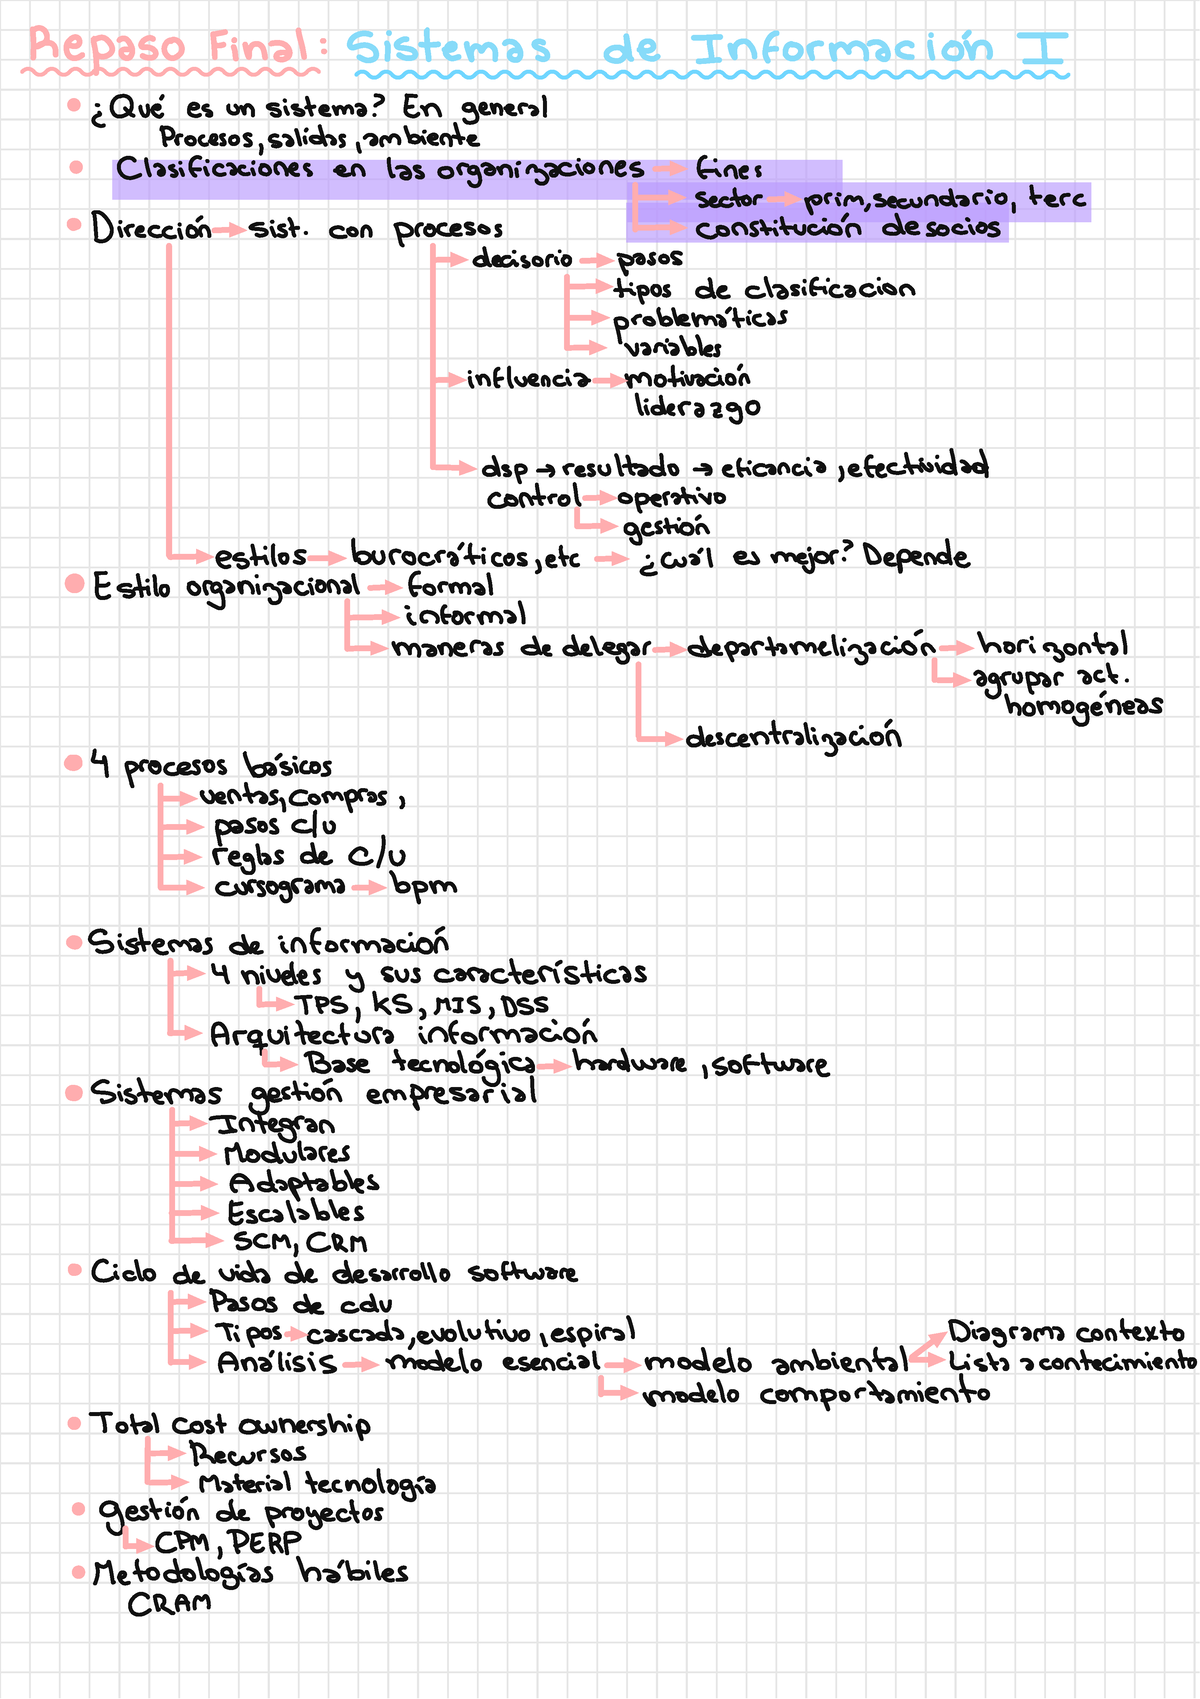 Repaso Final: Sistemas de Información I
¿Qué es un sistema? En general
Procesos, salidas, ambiente
Clasificaciones en las organizaciones → fines
sector → prim, secundario, terc
constitución de socios
Dirección → sist. con procesos
decisorio → pasos
tipos de clasificacion
problemáticas
variables
influencia → motivación
liderazgo
dsp → resultado → eficancia, efectividad
control → operativo
gestión
estilos → burocráticos, etc → ¿cuál es mejor? Depende
Estilo organizacional → formal
informal
maneras de delegar → departamelización → horizontal
agrupar act.
homogéneas
descentralización
4 procesos básicos
ventas, compras,
pasos c/u
reglas de c/u
cursograma → bpm
Sistemas de información
4 niveles y sus características
TPS, KS, MIS, DSS
Arquitectura información
Base tecnológica → hardware, software
Sistemas gestión empresarial
Integran
Modulares
Adaptables
Escalables
SCM, CRM
Ciclo de vida de desarrollo software
Pasos de cdv
Tipos → cascada, evolutivo, espiral
Análisis → modelo esencial → modelo ambiental → Diagrama contexto
Lista acontecimiento
modelo comportamiento
Total cost ownership
Recursos
Material tecnología
gestión de proyectos
CPM, PERP
Metodologías hábiles
CRAM